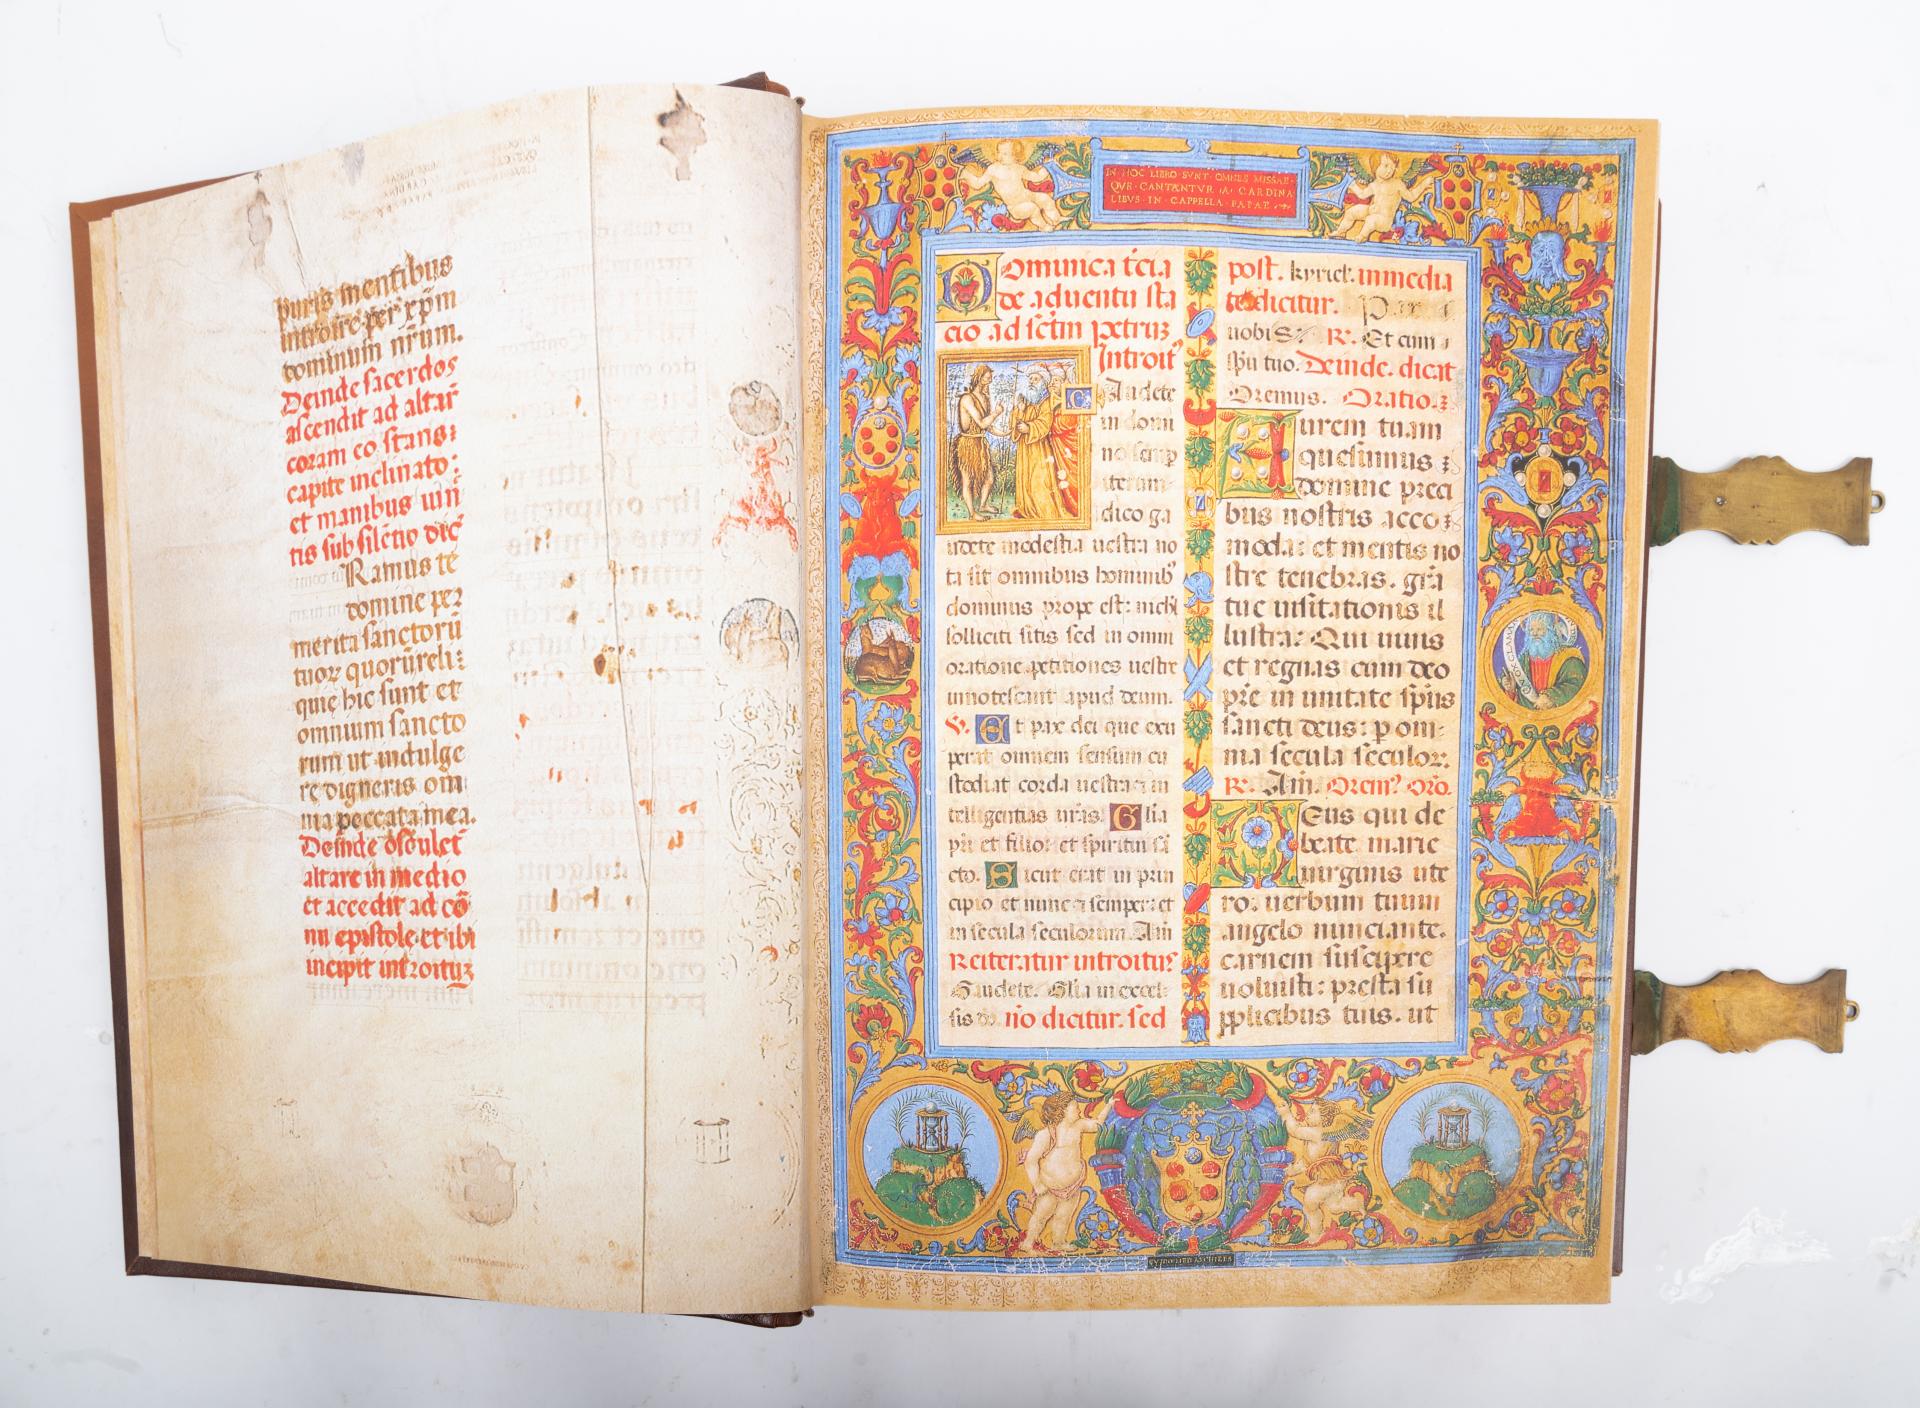 puris mentibus
introire per xp̄m
dominum nr̄um.
Deinde sacerdos
ascendit ad altar̄
coram eo stans:
capite inclinato:
et manibus iun̄
tis sub silētio dic̄
Ramus te
domine per
merita sanctorū
tuoꝝ quorū reli:
quię hic sunt et
omnium sancto
rum ut indulge
re digneris om
nia peccata mea.
Deinde osculet̄
altare in medio
et accedit ad cō
nu epistole et ibi
incipit introituʒ
IN HOC LIBRO SVNT OMNES MISSAE
QVE CANTANTVR A CARDINA
LIBVS IN CAPPELLA PAPAE
Dominica tcia
de aduentu sta
cio ad sc̄tm petruʒ
Introit᾽
Gaudete
in domi
no semp
iterum
dico ga
udete modestia uestra no
ta sit omnibus hominib᾽
dominus prope est: nichil
solliciti sitis sed in omni
oratione petitiones uestre
innotescant apud deum.
V. Et pax dei que exu
perat omnem sensum cu
stodiat corda uestra et in
telligentias uras. Glia
pr̄i et filio: et spiritui sā
cto. Sicut erat in prin
cipio et nunc et semper: et
in secula seculorum. Am̄
Reiteratur introitus
Gaudete. Glia in excel
sis do. nō dicitur. sed
post. kyriel. immedia
te dicitur. Pax
uobis. R. Et cum
spū tuo. Deinde. dicat
Oremus. Oratio.
Aurem tuam
quesumus
domine preci
bus nostris acco
moda: et mentis no
stre tenebras. grā
tue uisitationis il
lustra: Qui uiuis
et regnas cum deo
pr̄e in unitate sp̄us
sancti deus: p om
nia secula seculoꝝ:
R. Am̄. Orem᾽ Orō.
Deus qui de
beate marie
uirginis ute
ro. uerbum tuum
angelo nunciante.
carnem suscipere
uoluisti: presta su
pplicibus tuis. ut
VOX CLAMA